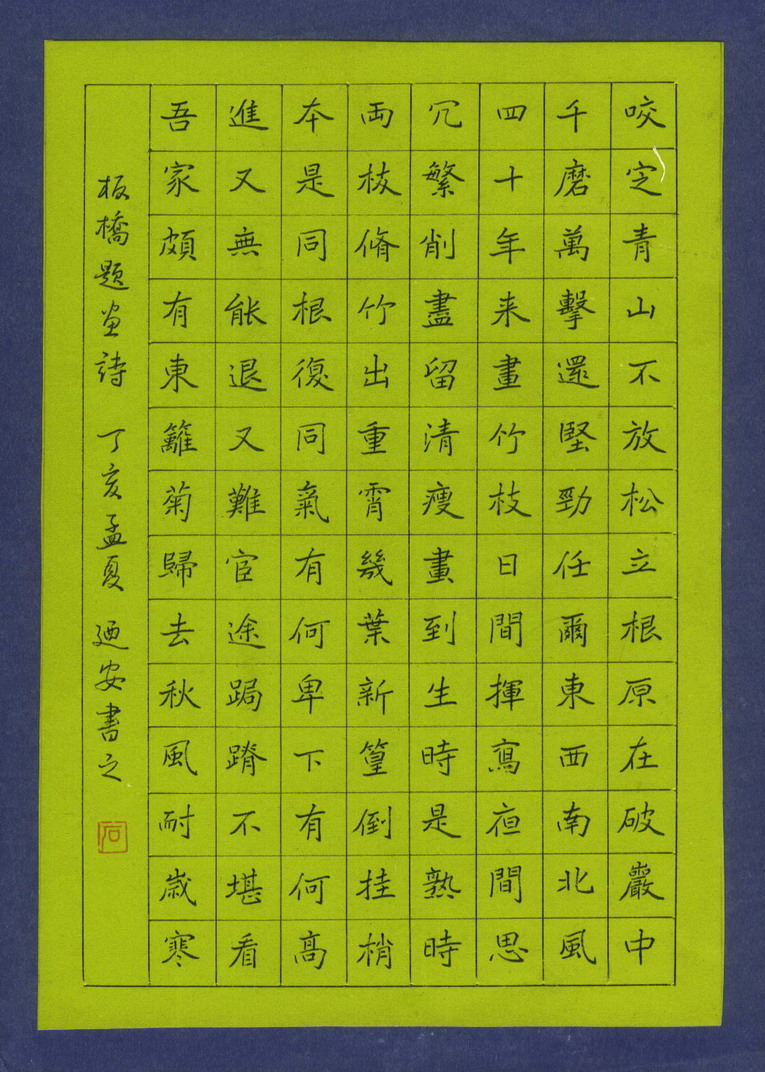 咬定青山不放松立根原在破巖中
千磨萬擊還堅勁任爾東西南北風
四十年来畫竹枝日間揮寫夜間思
冗繁削盡留清瘦畫到生時是熟時
兩枝脩竹出重霄幾葉新篁倒挂梢
本是同根復同氣有何卑下有何高
進又無能退又難宦途跼蹐不堪看
吾家頗有東籬菊歸去秋風耐歲寒
板橋題畫詩 丁亥孟夏 廼安書之
石